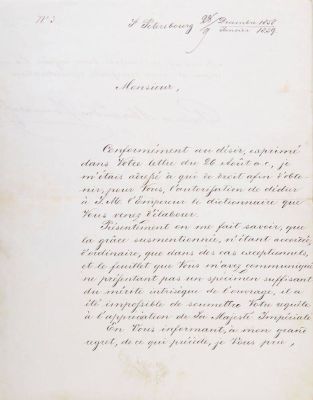 N° 3
S. Pétersbourg 28/9 Décembre 1858 Janvier 1859.
Monsieur,
Conformément au désir, exprimé
dans Votre lettre du 26 Août a. c., je
m'étais adressé à qui de droit afin d'obte-
nir, pour Vous, l'autorisation de dédier
à S. M. l'Empereur le dictionnaire que
Vous venez d'élaborer.
Présentement on me fait savoir, que
la grâce susmentionnée, n'étant accordée,
d'ordinaire, que dans des cas exceptionnels,
et le feuillet que Vous m'avez communiqué
ne présentant pas un specimen suffisant
du mérite intrinsèque de l'ouvrage, il a
été impossible de soumettre Votre requête
à l'appréciation de Sa Majesté Impériale
En Vous informant, à mon grand
regret, de ce qui précède, je Vous prie,